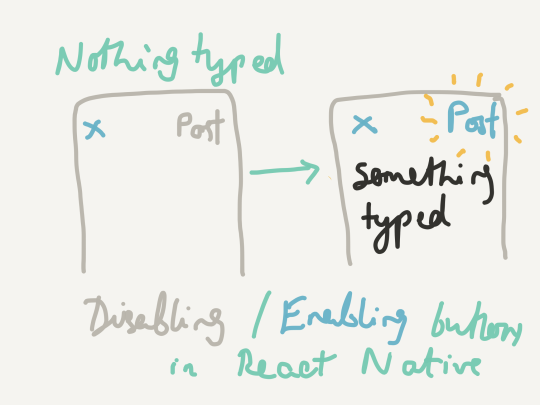 Nothing typed
x Post
x Post
something
typed
Disabling / Enabling buttons
in React Native